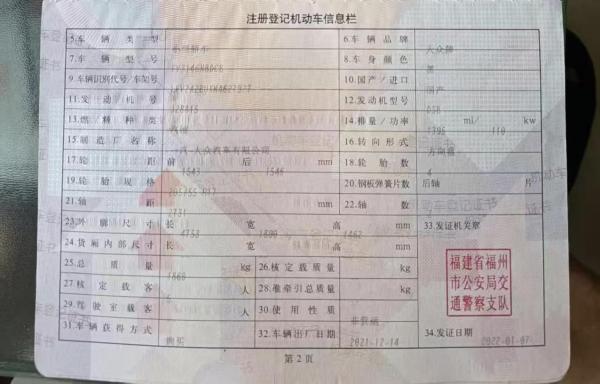 注册登记机动车信息栏
5.车辆类型 小型轿车 6.车辆品牌 大众牌
7.车辆型号 8.车身颜色 黑
9.车辆识别代号/车架号 10.国产/进口 国产
11.发动机号 12.发动机型号
13.燃料种类 汽油 14.排量/功率 1395 ml/ 110 kw
15.制造厂名称 一汽-大众汽车有限公司 16.转向形式 方向盘
17.轮距 前 1543 后 1546 mm 18.轮胎数 4
19.轮胎规格 20.钢板弹簧片数 后轴 片
21.轴距 2731 mm 22.轴数 2
23.外廓尺寸 长 4758 宽 高 1462 mm 33.发证机关章
24.货厢内部尺寸 长 宽 高 mm
25.总质量 kg 26.核定载质量 kg
福建省福州
市公安局交
通警察支队
27.核定载客 5 人 28.准牵引总质量 kg
29.驾驶室载客 人 30.使用性质 非营运
31.车辆获得方式 购买 32.车辆出厂日期 2021-12-14 34.发证日期 2022-01-07
第 2 页